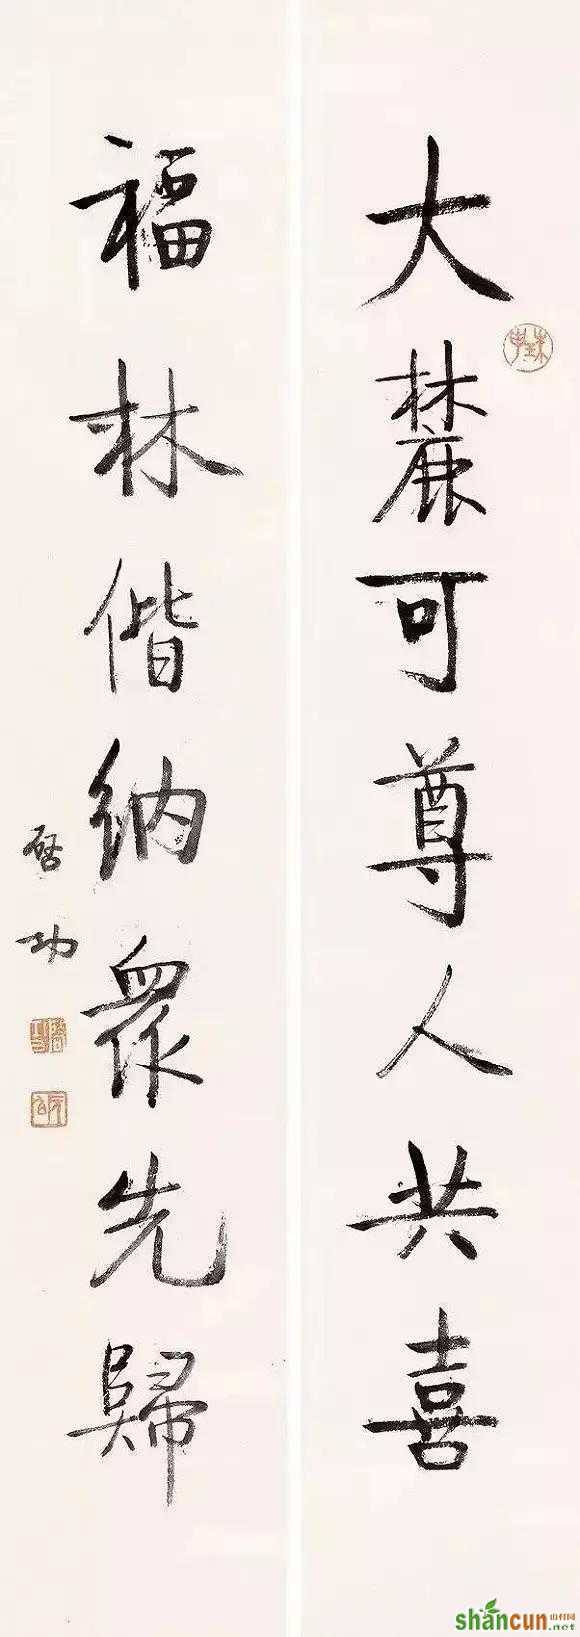 大麓可尊人共喜
福林偕纳眾先歸
启功
shancun
山村网
.net